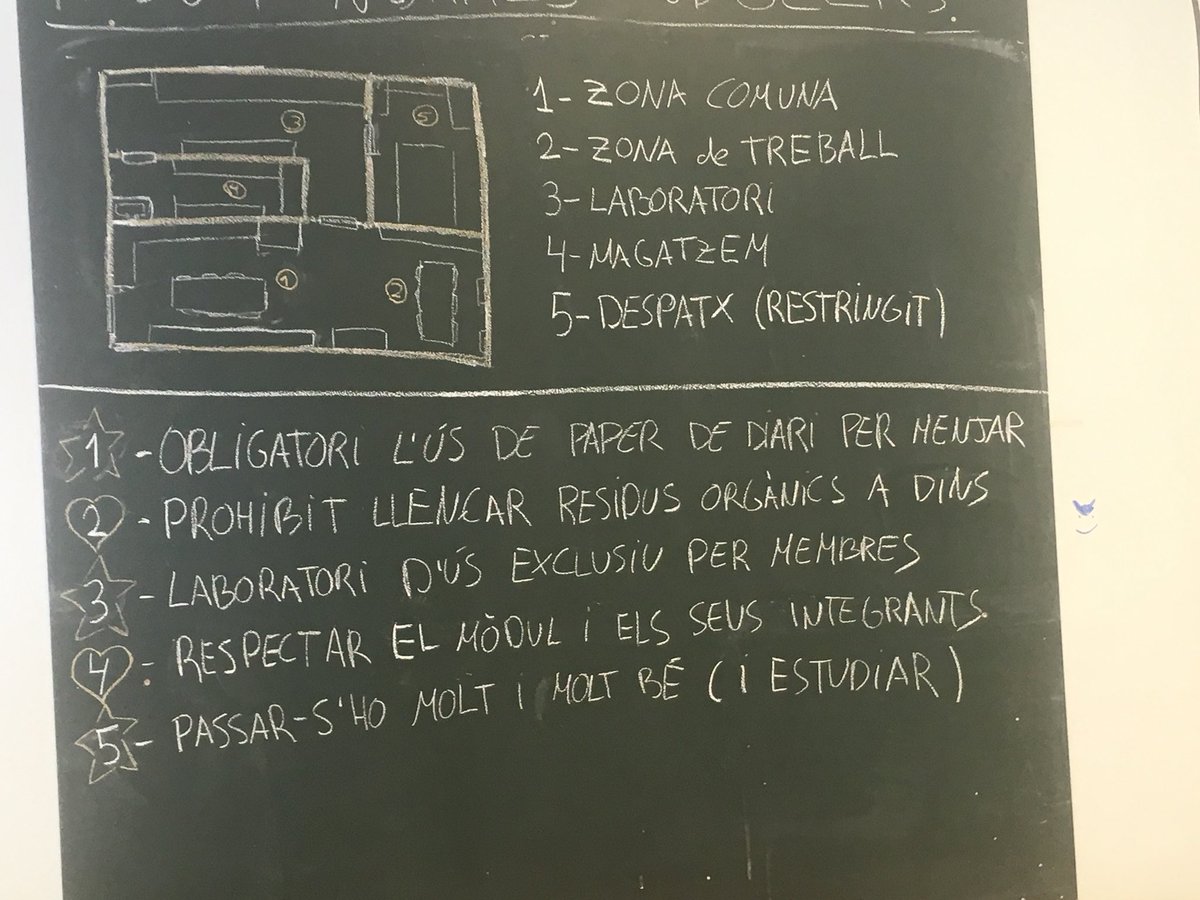 NORMES
1- ZONA COMUNA
2- ZONA de TREBALL
3- LABORATORI
4- MAGATZEM
5- DESPATX (RESTRINGIT)
3
5
4
1
2
1 - OBLIGATORI L'ÚS DE PAPER DE DIARI PER MENJAR
2 - PROHIBIT LLENCAR RESIDUS ORGÀNICS A DINS
3 - LABORATORI D'ÚS EXCLUSIU PER MEMBRES
4 - RESPECTAR EL MÒDUL I ELS SEUS INTEGRANTS.
5 - PASSAR-S'HO MOLT I MOLT BÉ (I ESTUDIAR)